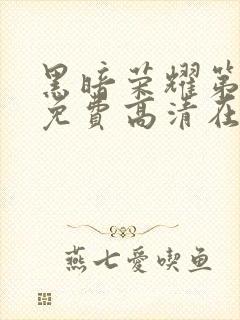 黑暗荣耀第
免費高清在
燕七愛喫鱼